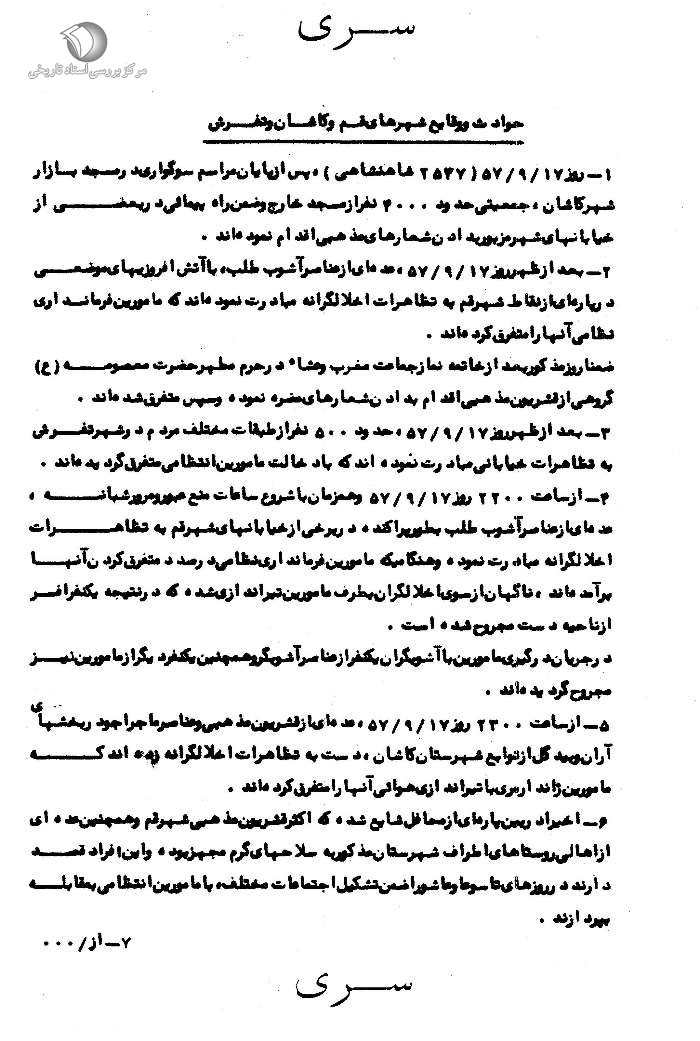 سری
مرکز بررسی اسناد تاریخی
حوادث ووقایع شهرهای قم وکاشان وتفرش
۱- روز ۵۷/۹/۱۷ (۲۵۳۷ شاهنشاهی)، پس ازپایان مراسم سوگواری در مسجد بازار
شهرکاشان، جمعیتی حدود ۴۰۰۰ نفر از مسجد خارج وضمن راه پیمائی در بعضی از
خیابانهای شهر مزبور به دادن شعارهای مذهبی اقدام نموده اند.
۲- بعد ازظهر روز ۵۷/۹/۱۷، عده ای از عناصر آشوب طلب، با آتش افروزیهای موضعی
در پاره ای از نقاط شهرقم به تظاهرات اخلالگرانه مبادرت نموده اند که مامورین فرمانداری
نظامی آنها را متفرق کرده اند.
ضمنا روز مذکور بعد از خاتمه نماز جماعت مغرب وعشاء در حرم مطهر حضرت معصومه (ع)
گروهی از قشریون مذهبی اقدام به دادن شعارهای مضره نموده وسپس متفرق شده اند.
۳- بعد ازظهر روز ۵۷/۹/۱۷، حدود ۵۰۰ نفر از طبقات مختلف مردم در شهر تفرش
به تظاهرات خیابانی مبادرت نموده اند که با دخالت مامورین انتظامی متفرق گردیده اند.
۴- از ساعت ۲۲۰۰ روز ۵۷/۹/۱۷ وهمزمان با شروع ساعات منع عبور ومرور شبانه،
عده ای از عناصر آشوب طلب بطور پراکنده در برخی از خیابانهای شهرقم به تظاهرات
اخلالگرانه مبادرت نموده وهنگامیکه مامورین فرمانداری نظامی در صدد متفرق کردن آنها
برآمده اند، ناگهان از سوی اخلالگران بطرف مامورین تیراندازی شده که در نتیجه یکنفر افسر
از ناحیه دست مجروح شده است.
در جریان درگیری مامورین با آشوبگران یکنفر از عناصر آشوبگر وهمچنین یکنفر دیگر از مامورین نیز
مجروح گردیده اند.
۵- از ساعت ۲۳۰۰ روز ۵۷/۹/۱۷، عده ای از قشریون مذهبی وعناصر ماجراجو در بخشهای
آران وبیدگل از توابع شهرستان کاشان، دست به تظاهرات اخلالگرانه زده اند که
مامورین ژاندارمری با تیراندازی هوائی آنها را متفرق کرده اند.
۶- اخیرا در بین پاره ای از محافل شایع شده که اکثر قشریون مذهبی شهرقم وهمچنین عده ای
از اهالی روستاهای اطراف شهرستان مذکور به سلاحهای گرم مجهز بوده واین افراد قصد
دارند در روزهای تاسوعا وعاشورا ضمن تشکیل اجتماعات مختلف، با مامورین انتظامی بمقابله
بپردازند.
۷- از/۰۰۰
سری